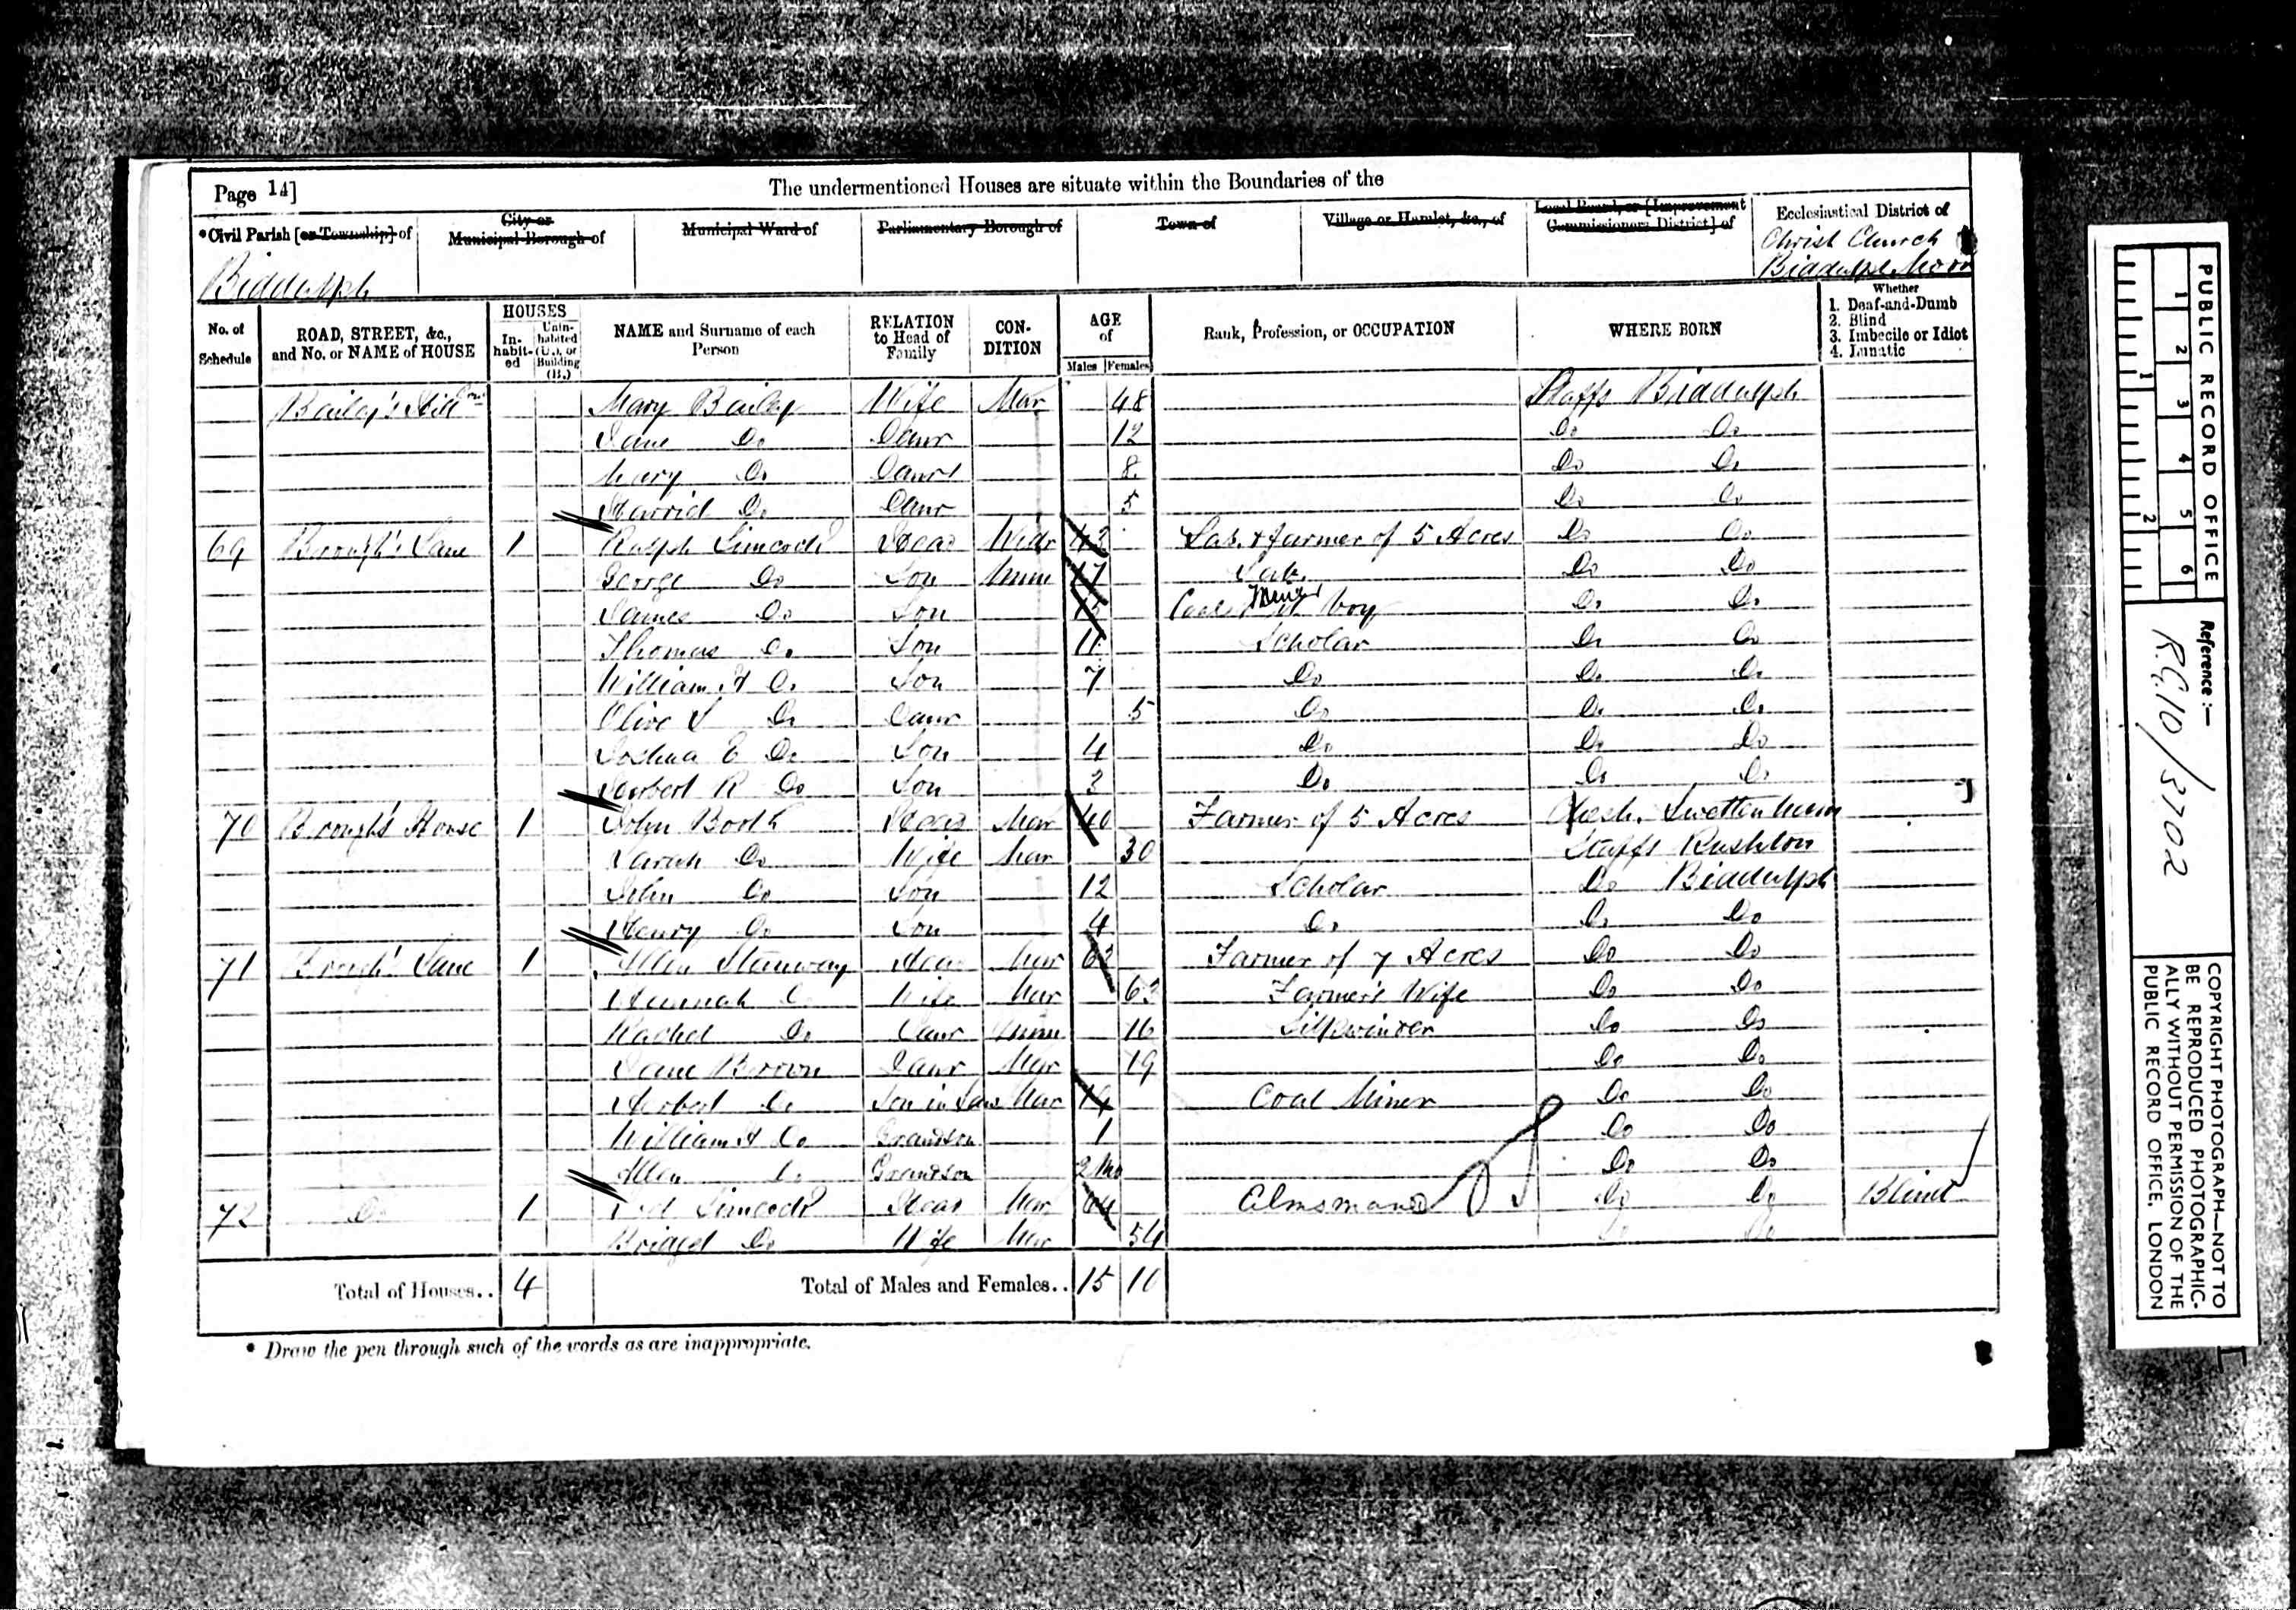 Page 14]
The undermentioned Houses are situate within the Boundaries of the
*Civil Parish [or Township] of
City or Municipal Borough of
Municipal Ward of
Parliamentary Borough of
Town of
Village or Hamlet, &c., of
Local Board, or [Improvement Commissioners District] of
Ecclesiastical District of
Biddulph
Christ Church
Biddulph Moor
No. of Schedule
ROAD, STREET, &c., and No. or NAME of HOUSE
HOUSES
In-habit-ed
Unin-habited (U.), or Building (B.)
NAME and Surname of each Person
RELATION to Head of Family
CON-DITION
AGE of
Males Females
Rank, Profession, or OCCUPATION
WHERE BORN
Whether
1. Deaf-and-Dumb
2. Blind
3. Imbecile or Idiot
4. Lunatic
Bailey's Hill Mary Bailey Wife Mar 48 Staffs Biddulph
Jane Do Daur 12 Do Do
Mary Do Daur 8 Do Do
Harriet Do Daur 5 Do Do
69 Brough's Lane 1 Ralph Simcock Head Widr 43 Lab. & farmer of 5 Acres Do Do
George Do Son Unm 17 Lab. Do Do
James Do Son Coal boy Do Do
Thomas Do Son 11 Scholar Do Do
William H Do Son 7 Do Do Do
Olive S Do Daur 5 Do Do Do
Joshua E Do Son 4 Do Do Do
Herbert R Do Son 3 Do Do Do
70 Brough's House 1 John Booth Head Mar 40 Farmer of 5 Acres Chesh. Swettenham
Sarah Do Wife Mar 30 Staffs Rushton
John Do Son 12 Scholar Do Biddulph
Henry Do Son 4 Do Do Do
71 Brough's Lane 1 Allen Stanway Head Mar 63 Farmer of 7 Acres Do Do
Hannah Do Wife Mar 63 Farmer's Wife Do Do
Rachel Do Daur Unm 16 Silkwinder Do Do
Jane Brown Daur Mar 19 Do Do
Herbert Do Son in Law Mar 19 Coal Miner Do Do
William H Do Grandson 1 Do Do
Allen Do Grandson 2 Mo Do Do
72 Do 1 Simcock Head Mar 64 Almsman Do Do Blind
Bridget Do Wife Mar 54 Do Do
Total of Houses.. 4
Total of Males and Females.. 15 10
* Draw the pen through such of the words as are inappropriate.
PUBLIC RECORD OFFICE
1 2 3 4 5 6
1 2
Reference :-
R.G.10/3702
COPYRIGHT PHOTOGRAPH—NOT TO
BE REPRODUCED PHOTOGRAPHIC-
ALLY WITHOUT PERMISSION OF THE
PUBLIC RECORD OFFICE, LONDON